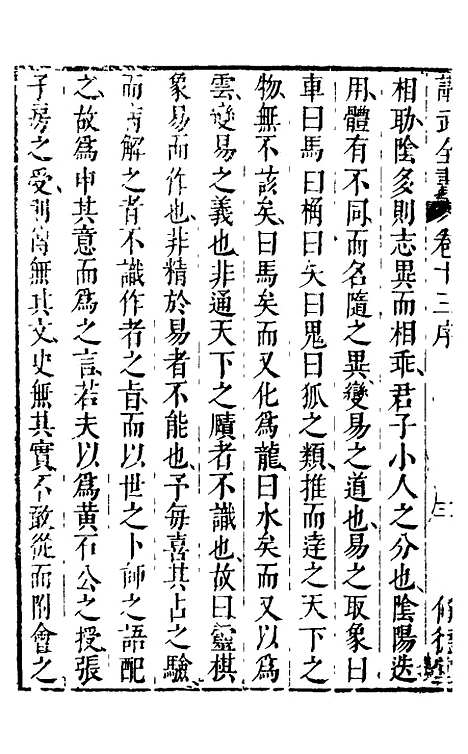 諸武全書 卷十三序 三
相助陰多則志異而相乖君子小人之分也陰陽迭
用體有不同而名隨之異變易之道也易之取象曰
車曰馬曰桷曰矢曰鬼曰狐之類推而達之天下之
物無不該矣曰馬矣而又化為龍曰水矣而又以為
雲變易之義也非通天下之賾者不識也故曰靈棋
象易而作也非精於易者不能也予每喜其占之驗
而病解之者不識作者之旨而以世之卜師之語配
之故為申其意而為之言若夫以為黃石公之授張
子房之受則書無其文史無其實不敢從而附會之